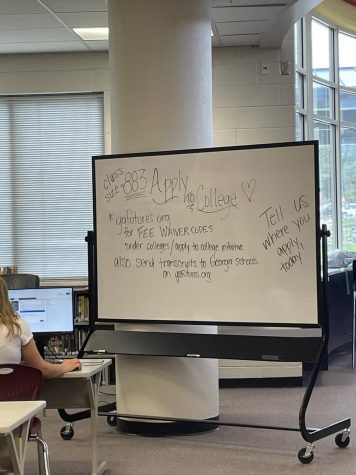 class size = 883
Apply to College ♡
* gafutures.org
for FEE WAIVER CODES
under colleges/apply to college initiative
also send transcripts to Georgia schools
on gafutures.org
Tell us
where you
apply,
today